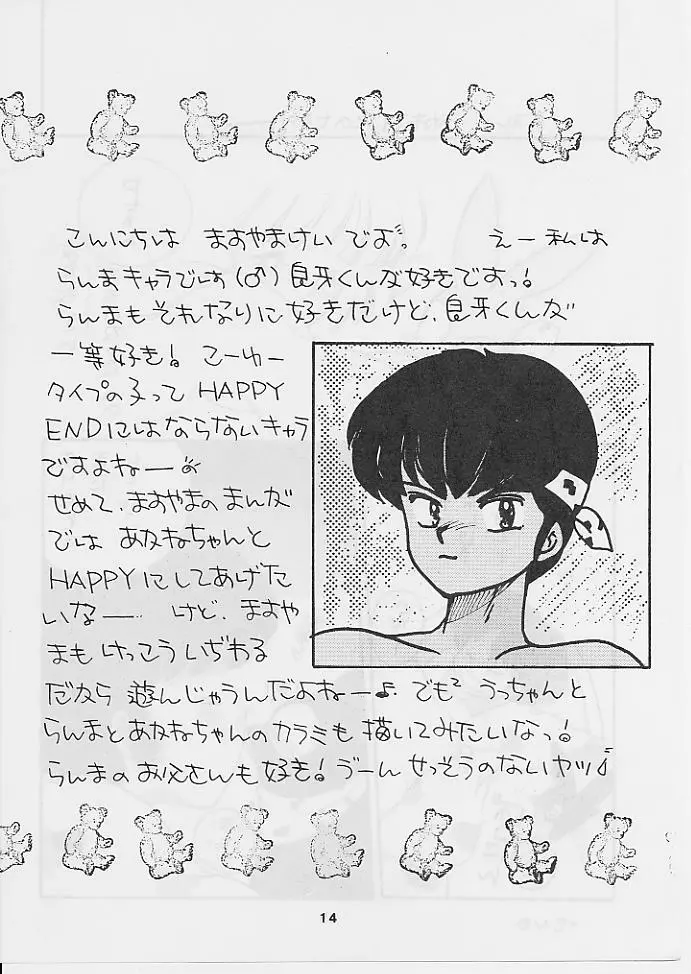 こんにちは ますやまけい です。 えー私は
らんまキャラでは(♂)良牙くんが好きですっ!
らんまもそれなりに好きだけど、良牙くんが
一等好き! こーゆー
タイプの子って HAPPY
ENDにはならないキャラ
ですよねー
せめて、ますやまのまんが
では あかねちゃんと
HAPPYにしてあげた
いなー けど、ますや
まも けっこういぢわる
だから 遊んじゃうんだよねー♪ でも² うっちゃんと
らんまとあかねちゃんのカラミも描いてみたいなっ!
らんまのお父さんも好き! うーん せっそうのないヤツ♪
14